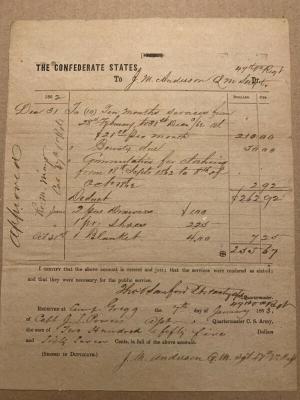 47th Regt
THE CONFEDERATE STATES,
To J. M. Anderson Q M Sergt. Dr.
1862
DOLLARS CTS.
Dec 31 To (10) Ten months services from
28th February to 31st Decr 1862 at
$21 00 per month 210.00
" Bounty due 50.00
" Commutation for clothing
from 8th Sept 1862 to 8th of
Oct 1862 2.92
$262.92
Deduct
June 2 prs Drawers $1.00
" 1 pr Shoes 2.25
Oct 21st 1 Blanket 4.00 7.25
255.67
Approved
I CERTIFY that the above account is correct and just; that the services were rendered as stated; and that they were necessary for the public service.
Quartermaster.
RECEIVED at Camp Gregg the 7th of January 1863,
of Capt Quartermaster C. S. Army,
the sum of Two Hundred & fifty five Dollars
and Sixty Seven Cents, in full of the above account.
(SIGNED IN DUPLICATE.)
J. M. Anderson Q. M. Sgt 47th Va Regt